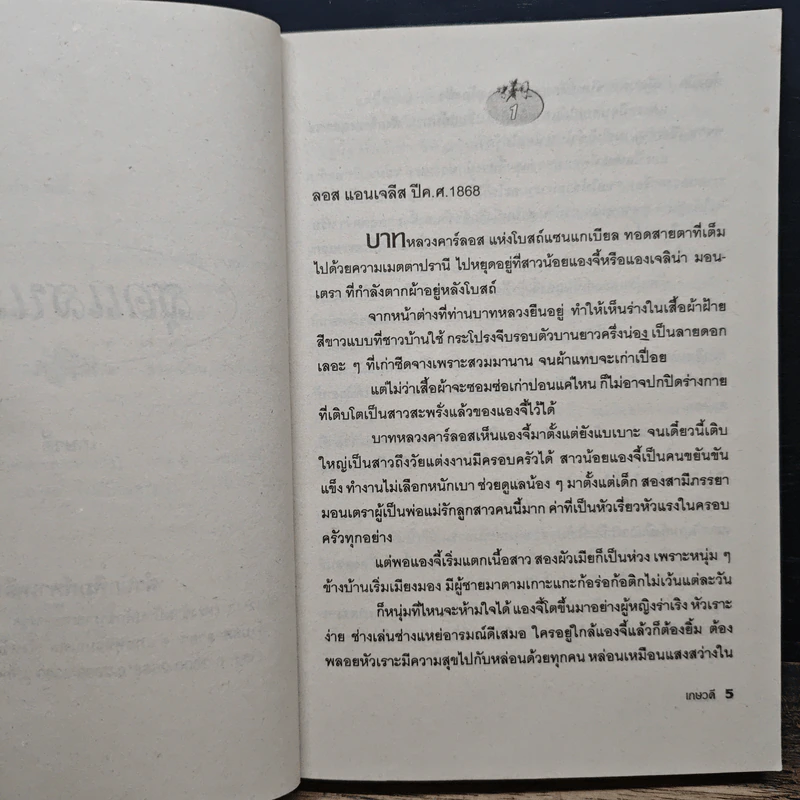 1
ลอส แอนเจลีส ปีค.ศ.1868
บาทหลวงคาร์ลอส แห่งโบสถ์แซนแกเบียล ทอดสายตาที่เต็ม
ไปด้วยความเมตตาปรานี ไปหยุดอยู่ที่สาวน้อยแองจี้หรือแองเจลิน่า มอน-
เตรา ที่กำลังตากผ้าอยู่หลังโบสถ์
จากหน้าต่างที่ท่านบาทหลวงยืนอยู่ ทำให้เห็นร่างในเสื้อผ้าฝ้าย
สีขาวแบบที่ชาวบ้านใช้ กระโปรงจีบรอบตัวบานยาวครึ่งน่อง เป็นลายดอก
เลอะ ๆ ที่เก่าซีดจางเพราะสวมมานาน จนผ้าแทบจะเก่าเปื่อย
แต่ไม่ว่าเสื้อผ้าจะซอมซ่อเก่าปอนแค่ไหน ก็ไม่อาจปกปิดร่างกาย
ที่เติบโตเป็นสาวสะพรั่งแล้วของแองจี้ไว้ได้
บาทหลวงคาร์ลอสเห็นแองจี้มาตั้งแต่ยังแบเบาะ จนเดี๋ยวนี้เติบ
ใหญ่เป็นสาวถึงวัยแต่งงานมีครอบครัวได้ สาวน้อยแองจี้เป็นคนขยันขัน
แข็ง ทำงานไม่เลือกหนักเบา ช่วยดูแลน้อง ๆ มาตั้งแต่เด็ก สองสามีภรรยา
มอนเตราผู้เป็นพ่อแม่รักลูกสาวคนนี้มาก ค่าที่เป็นหัวเรี่ยวหัวแรงในครอบ
ครัวทุกอย่าง
แต่พอแองจี้เริ่มแตกเนื้อสาว สองผัวเมียก็เป็นห่วง เพราะหนุ่ม ๆ
ข้างบ้านเริ่มเมียงมอง มีผู้ชายมาตามเกาะแกะก้อร่อก้อติกไม่เว้นแต่ละวัน
ก็หนุ่มที่ไหนจะห้ามใจได้ แองจี้โตขึ้นมาอย่างผู้หญิงร่าเริง หัวเราะ
ง่าย ช่างเล่นช่างแหย่อารมณ์ดีเสมอ ใครอยู่ใกล้แองจี้แล้วก็ต้องยิ้ม ต้อง
พลอยหัวเราะมีความสุขไปกับหล่อนด้วยทุกคน หล่อนเหมือนแสงสว่างใน
เกษวดี 5